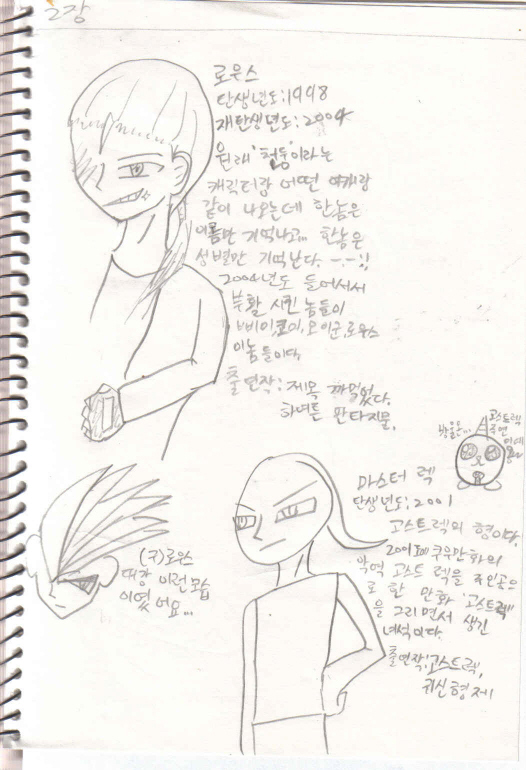 2장
로우스
탄생년도:1998
재탄생년도:2004
원래 '청룡'이라는
캐릭터랑 어떤 여캐랑
같이 나오는데 한놈은
이름만 기억나고... 한놈은
성별만 기억난다. -.-;;
2004년도 들어서서
부활 시킨 놈들이
삐이,쿄이,오이군,로우스
이놈들이다.
출연작: 제목 까먹었다.
하여튼 판타지물.
(구)로우스
대강 이런모습
이였어요...
방울은...
고스트렉
마스터 렉
탄생년도:2001
고스트렉의 형이다.
악역 고스트 렉을 주인공으
로 한 만화 '고스트렉'
을 그리면서 생긴
녀석이다.
출연작:고스트렉,
귀신형제